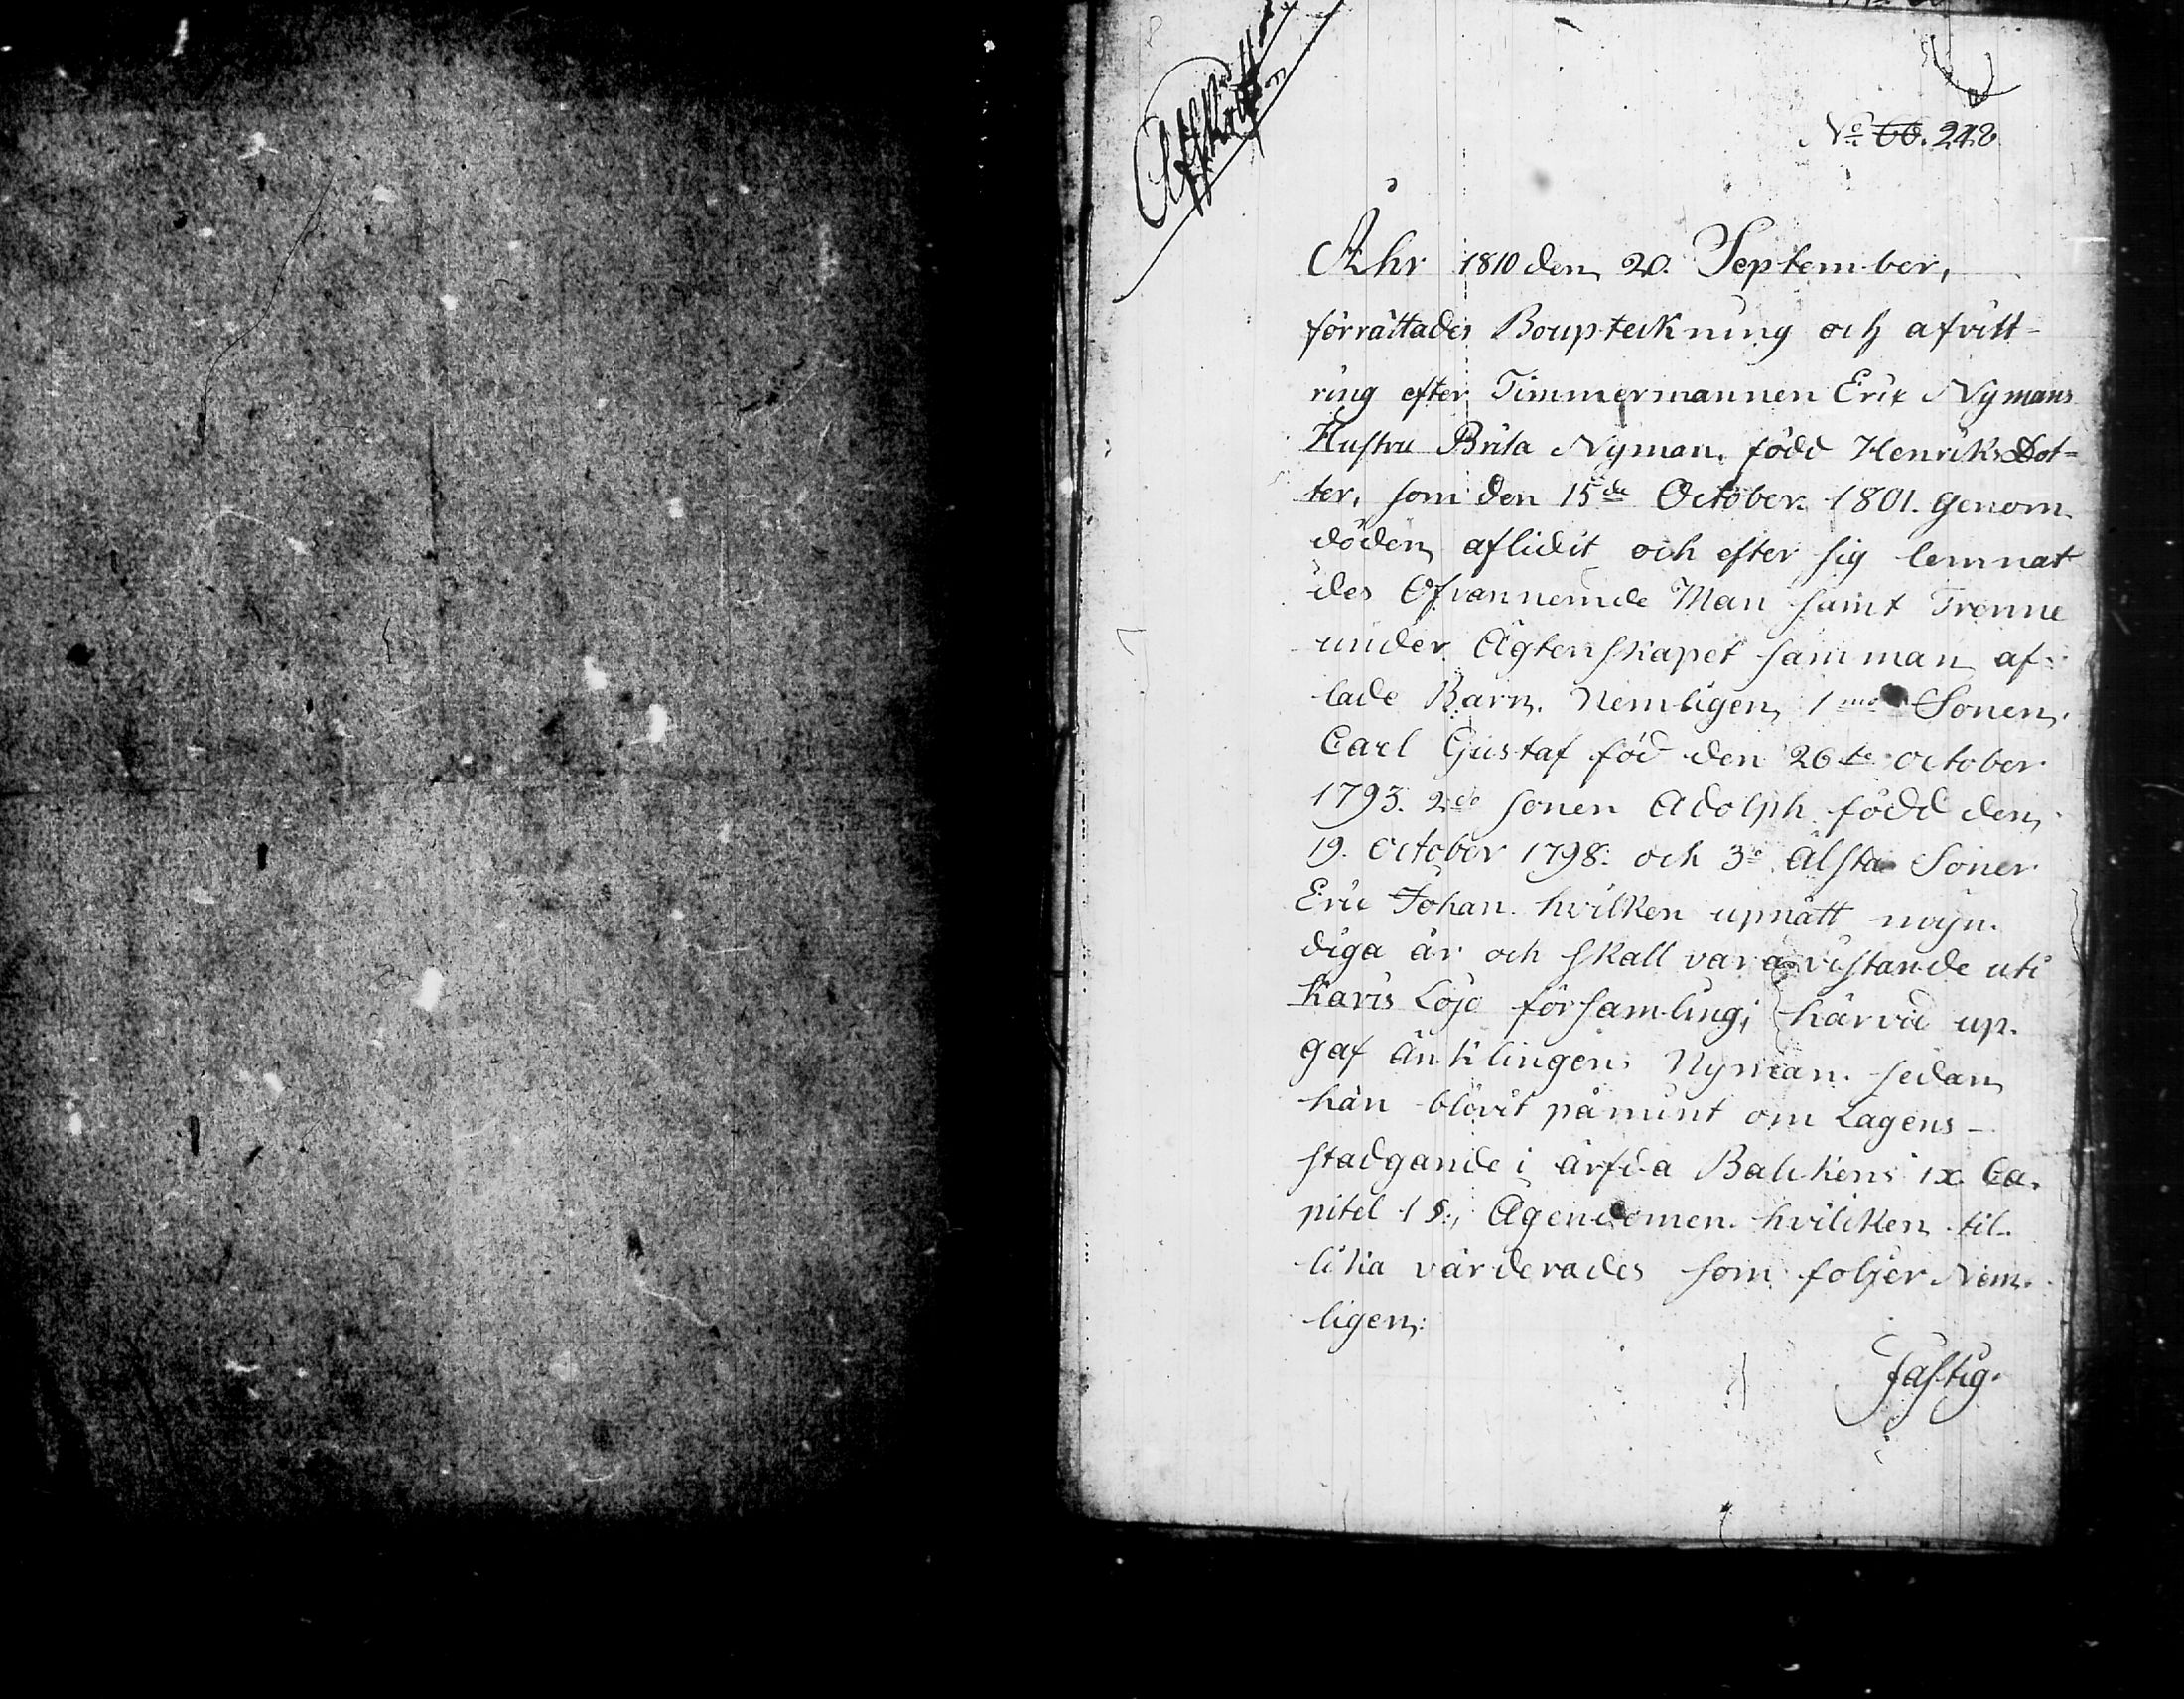 Afskrift
No 60. 248
Åhr 1810 den 20. September,
förrättades Boupteckning och afvitt-
ring efter Timmermannen Eric Nymans
Hustru Brita Nyman, född HenriksDot-
ter, som den 15de October 1801. genom
döden aflidit och efter sig lemnat
des Ofvannemde Man samt Trenne
under Ägtenskapet samman af-
lade Barn. Nemligen 1mo Sonen
Carl Gustaf föd den 26te october
1793. 2do sonen Adolph född den
19. October 1798. och 3o älsta Sonen
Eric Johan hvilken upnått myn-
diga år och skall vara vistande uti
Karis Lojo församling; härvid up-
gaf Änklingen Nyman sedan
han blivit påmint om Lagens
stadgande i ärfda Balkens ix Ca-
pitel 1 §., Ägendomen hvilken til-
lika värderades som följer Nem-
ligen:
Fastig-